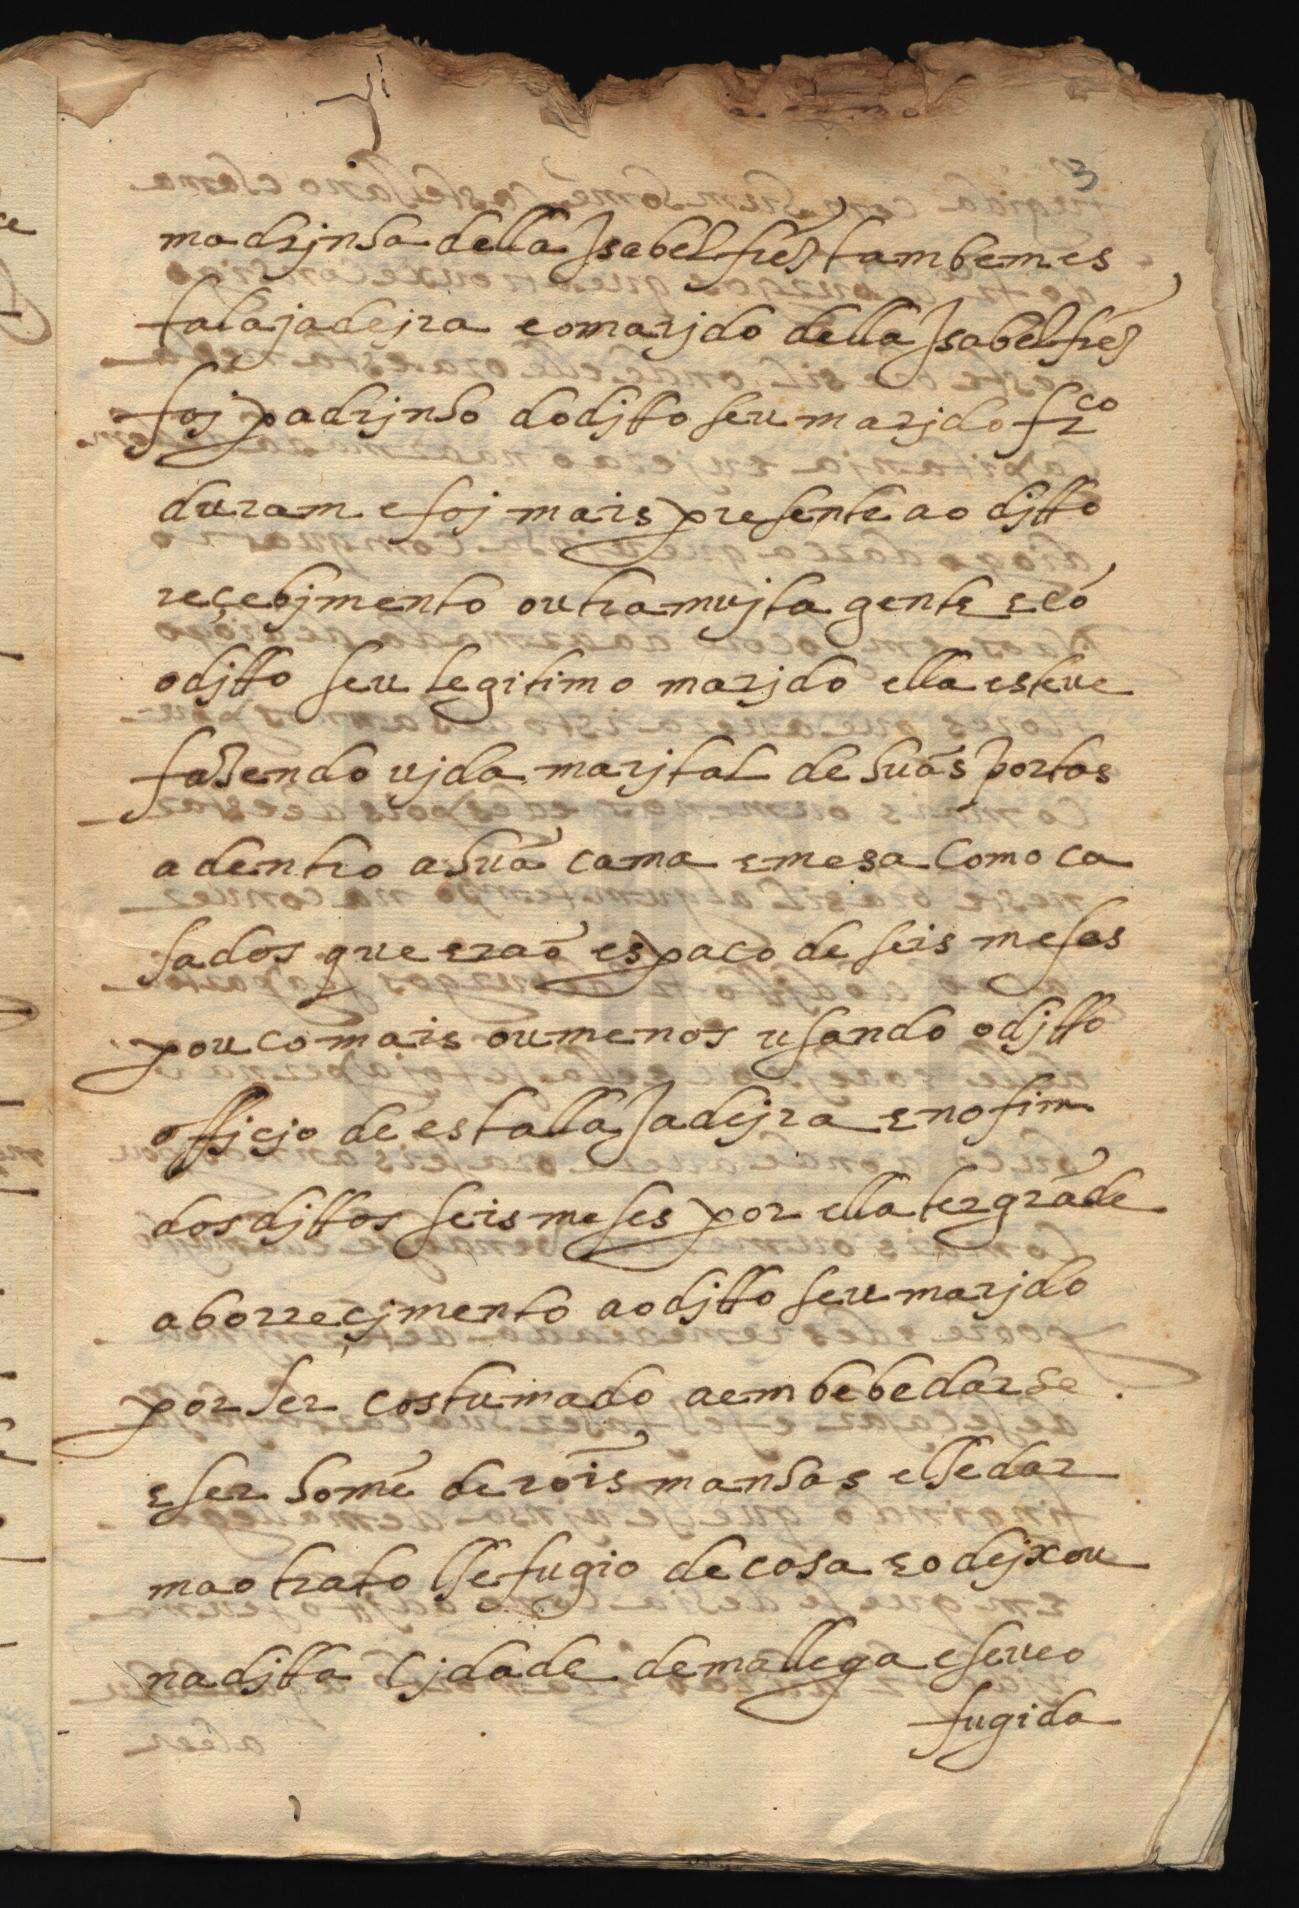 3
madrjnha della Isabel frz tambem es
talajadejra e o marjdo della Isabel frz
foj padrjnho do djtto seu marjdo frco
duram e foj mais presente ao djtto
reçebjmento outra mujta gente e cõ
o djtto seu legitimo marjdo ella esteve
fazendo vjda marjtal de huãs portas
a dentro a huã cama e mesa como ca
sados que eraõ espaco de seis meses
pouco mais ou menos usando o djtto
officjo de estallajadejra e no fim
dos djttos seis meses por ella ter grãde
aborreçjmento ao djtto seu marjdo
por ser costumado a embebedarse
e ser home de roĩs manhas e lhe dar
mao trato lhe fugio de casa e o dejxou
na djtta cjdade de mallega e se veo
fugida